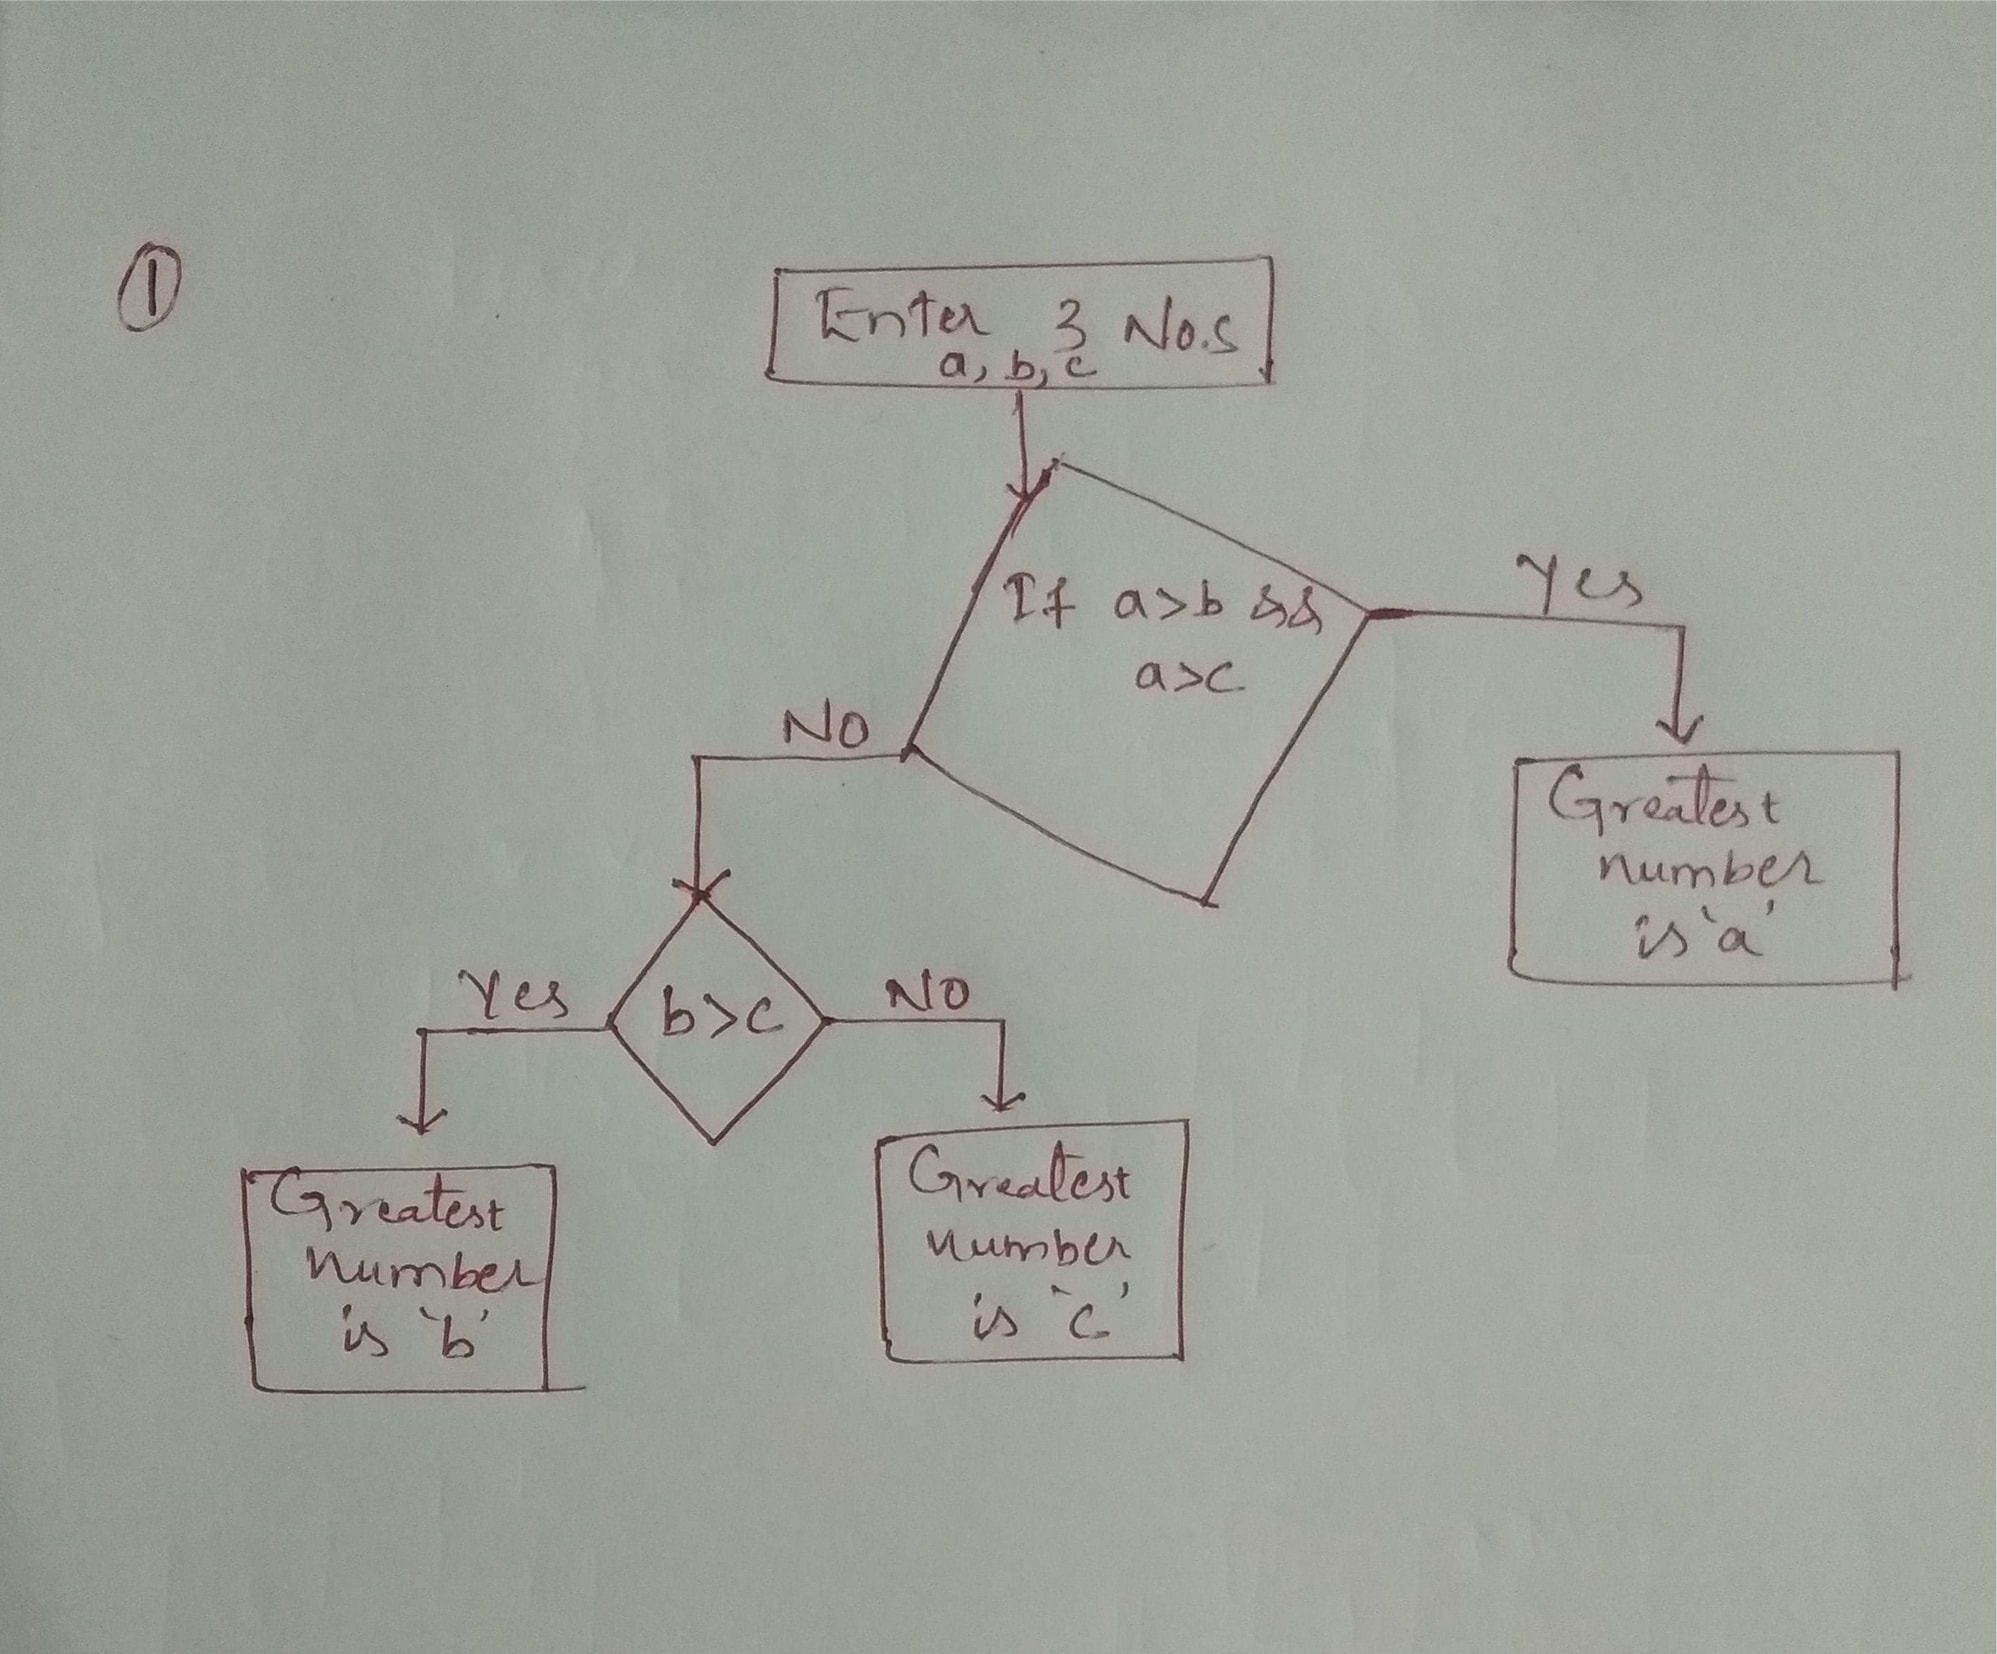 1
Enter 3 No.s
a, b, c
If a>b &&
a>c
Yes
NO
Greatest
number
is 'a'
b>c
Yes
NO
Greatest
number
is 'b'
Greatest
number
is 'c'